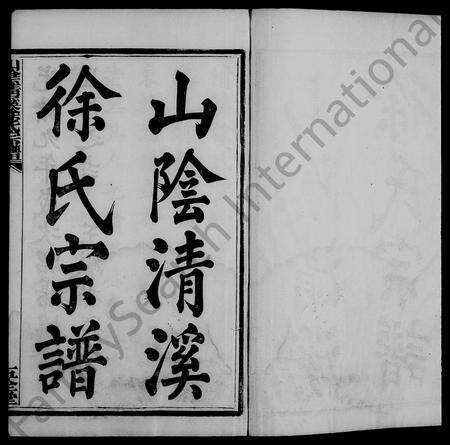 山陰清溪
徐氏宗譜
FamilySearch International